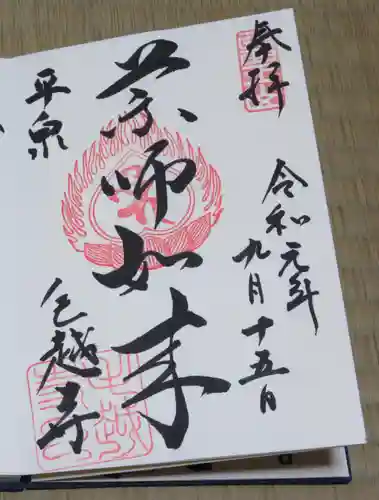 奉拝
令和元年
九月十五日
薬師如来
平泉
毛越寺